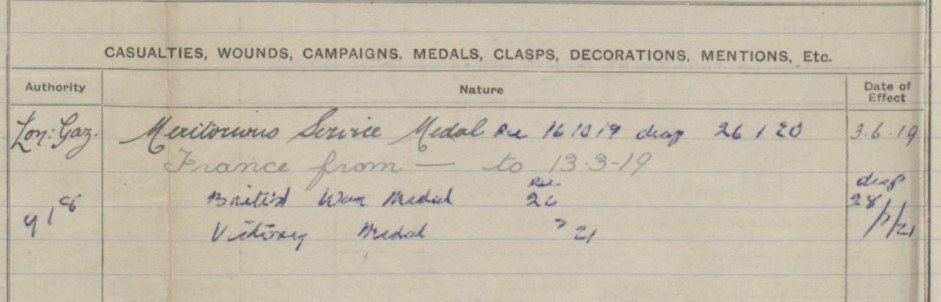 CASUALTIES, WOUNDS, CAMPAIGNS, MEDALS, CLASPS, DECORATIONS, MENTIONS, Etc.
Authority Nature Date of Effect
Lon: Gaz. Meritorious Service Medal Rec 16 10 19 desp 26 1 20 3.6.19
France from — to 13-3-19
British War Medal Rec 20 desp 28/7/21
Victory Medal " 21